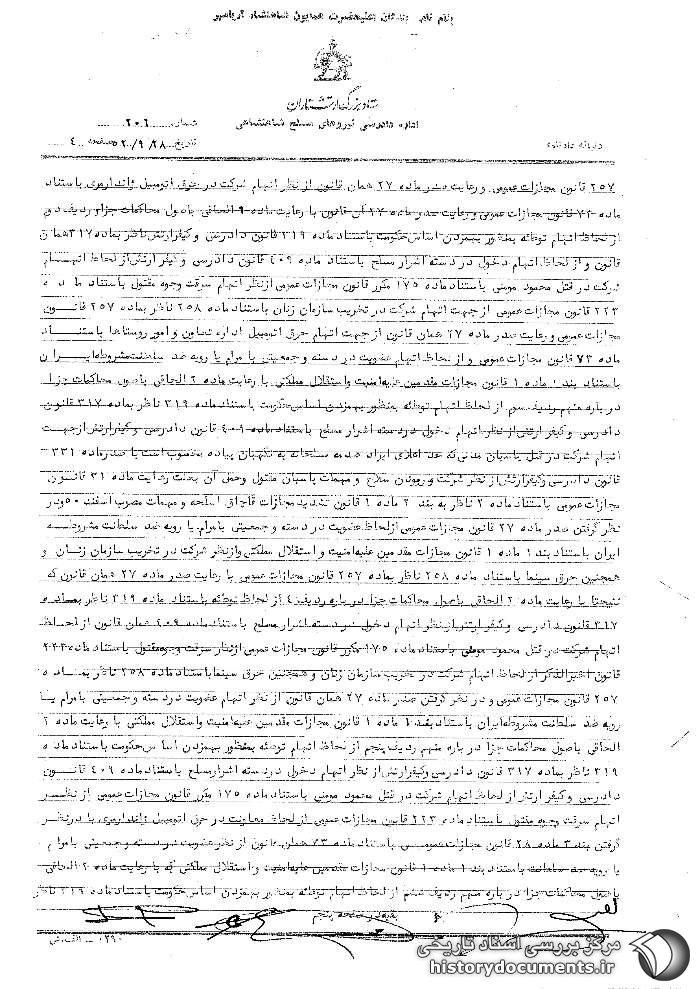 بنام نامی بندگان اعلیحضرت همایون شاهنشاه آریامهر
ستاد بزرگ ارتشتاران
اداره دادرسی نیروهای مسلح شاهنشاهی
شماره ۲۰۶
دنباله دادنامه
تاریخ ۲۰/۹/۲۸ صفحه ۴
۲۵۷ قانون مجازات عمومی و رعایت صدر ماده ۲۷ همان قانون از نظر اتهام شرکت در حرق اتومبیل ژاندارمری باستناد
ماده ۷۳ قانون مجازات عمومی و رعایت صدر ماده ۲۷ آن قانون با رعایت ماده ۹ الحاقی باصول محاکمات جزا و ردیف دوم
از لحاظ اتهام توطئه بمنظور بهمزدن اساس حکومت باستناد ماده ۳۱۹ قانون دادرسی و کیفر ارتش ناظر بماده ۳۱۷ همان
قانون و از لحاظ اتهام دخول در دسته اشرار مسلح باستناد ماده ۴۰۹ قانون دادرسی و کیفر ارتش از لحاظ اتهام
شرکت در قتل محمود مومنی باستناد ماده ۱۷۵ مکرر قانون مجازات عمومی از نظر اتهام سرقت وجوه مقتول باستناد ماده
۲۲۳ قانون مجازات عمومی از جهت اتهام شرکت در تخریب سازمان زنان باستناد ماده ۲۵۸ ناظر بماده ۲۵۷ قانون
مجازات عمومی و رعایت صدر ماده ۲۷ همان قانون از جهت اتهام حرق اتومبیل اداره تعاون و امور روستاها باستناد
ماده ۷۳ قانون مجازات عمومی و از لحاظ اتهام عضویت در دسته و جمعیتی با مرام یا رویه ضد سلطنت مشروطه ایران
باستناد بند ۱ ماده ۱ قانون مجازات مقدمین علیه امنیت و استقلال مملکتی با رعایت ماده ۲ الحاقی باصول محاکمات جزا
در باره متهم ردیف سوم از لحاظ اتهام توطئه بمنظور بهمزدن اساس حکومت باستناد ماده ۳۱۹ ناظر بماده ۳۱۷ قانون
دادرسی و کیفر ارتش از نظر اتهام دخول در دسته اشرار مسلح باستناد ماده ۴۰۹ قانون دادرسی و کیفر ارتش از جهت
اتهام شرکت در قتل پاسبان مدنی که حد اعلای ایراد صدمه مسلحانه به نگهبان پیاده محسوب است با صدر ماده ۳۳۱
قانون دادرسی و کیفر ارتش از نظر شرکت و ربودن سلاح و مهمات پاسبان مقتول و حمل آن بعلت رعایت ماده ۳۱ قانون
مجازات عمومی باستناد ماده ۲ ناظر به بند ۲ ماده ۱ قانون تشدید مجازات قاچاق اسلحه و مهمات مصوب اسفند ۵۰ و در
نظر گرفتن صدر ماده ۲۷ قانون مجازات عمومی از لحاظ عضویت در دسته و جمعیتی با مرام یا رویه ضد سلطنت مشروطه
ایران باستناد بند ۱ ماده ۱ قانون مجازات مقدمین علیه امنیت و استقلال مملکتی و از نظر شرکت در تخریب سازمان زنان و
همچنین حرق سینما باستناد ماده ۲۵۸ ناظر بماده ۲۵۷ قانون مجازات عمومی با رعایت صدر ماده ۲۷ همان قانون که
نتیجتا با رعایت ماده ۲ الحاقی باصول محاکمات جزا در باره ردیف ۴ از لحاظ توطئه باستناد ماده ۳۱۹ ناظر بماده
۳۱۷ قانون دادرسی و کیفر ارتش از نظر اتهام دخول در دسته اشرار مسلح باستناد ماده ۴۰۹ همان قانون از لحاظ
اتهام شرکت در قتل محمود مومنی باستناد ماده ۱۷۵ مکرر قانون مجازات عمومی از نظر سرقت وجوه مقتول باستناد ماده ۲۲۳
قانون اخیرالذکر از لحاظ اتهام شرکت در تخریب سازمان زنان و همچنین حرق سینما باستناد ماده ۲۵۸ ناظر بماده
۲۵۷ قانون مجازات عمومی و در نظر گرفتن صدر ماده ۲۷ همان قانون از نظر اتهام عضویت در دسته و جمعیتی با مرام یا
رویه ضد سلطنت مشروطه ایران باستناد بند ۱ ماده ۱ قانون مجازات مقدمین علیه امنیت و استقلال مملکتی با رعایت ماده ۲
الحاقی باصول محاکمات جزا در باره متهم ردیف پنجم از لحاظ اتهام توطئه بمنظور بهمزدن اساس حکومت باستناد ماده
۳۱۹ ناظر بماده ۳۱۷ قانون دادرسی و کیفر ارتش از نظر اتهام دخول در دسته اشرار مسلح باستناد ماده ۴۰۹ قانون
دادرسی و کیفر ارتش از لحاظ اتهام شرکت در قتل محمود مومنی باستناد ماده ۱۷۵ مکرر قانون مجازات عمومی از نظر
اتهام سرقت وجوه مقتول باستناد ماده ۲۲۳ قانون مجازات عمومی از لحاظ معاونت در حرق اتومبیل ژاندارمری با در نظر
گرفتن بند ۳ ماده ۲۸ قانون مجازات عمومی باستناد ماده ۷۳ همان قانون از نظر عضویت در دسته و جمعیتی با مرام
یا رویه ضد سلطنت باستناد بند ۱ ماده ۱ قانون مجازات مقدمین علیه امنیت و استقلال مملکتی که با رعایت ماده ۲ الحاقی
باصول محاکمات جزا در باره متهم ردیف ششم از لحاظ اتهام توطئه بمنظور بهمزدن اساس حکومت باستناد ماده ۳۱۹ ناظر
بقیه در صفحه پنجم
۰۲۹۰ - الف.ش
مرکز بررسی اسناد تاریخی
historydocuments.ir